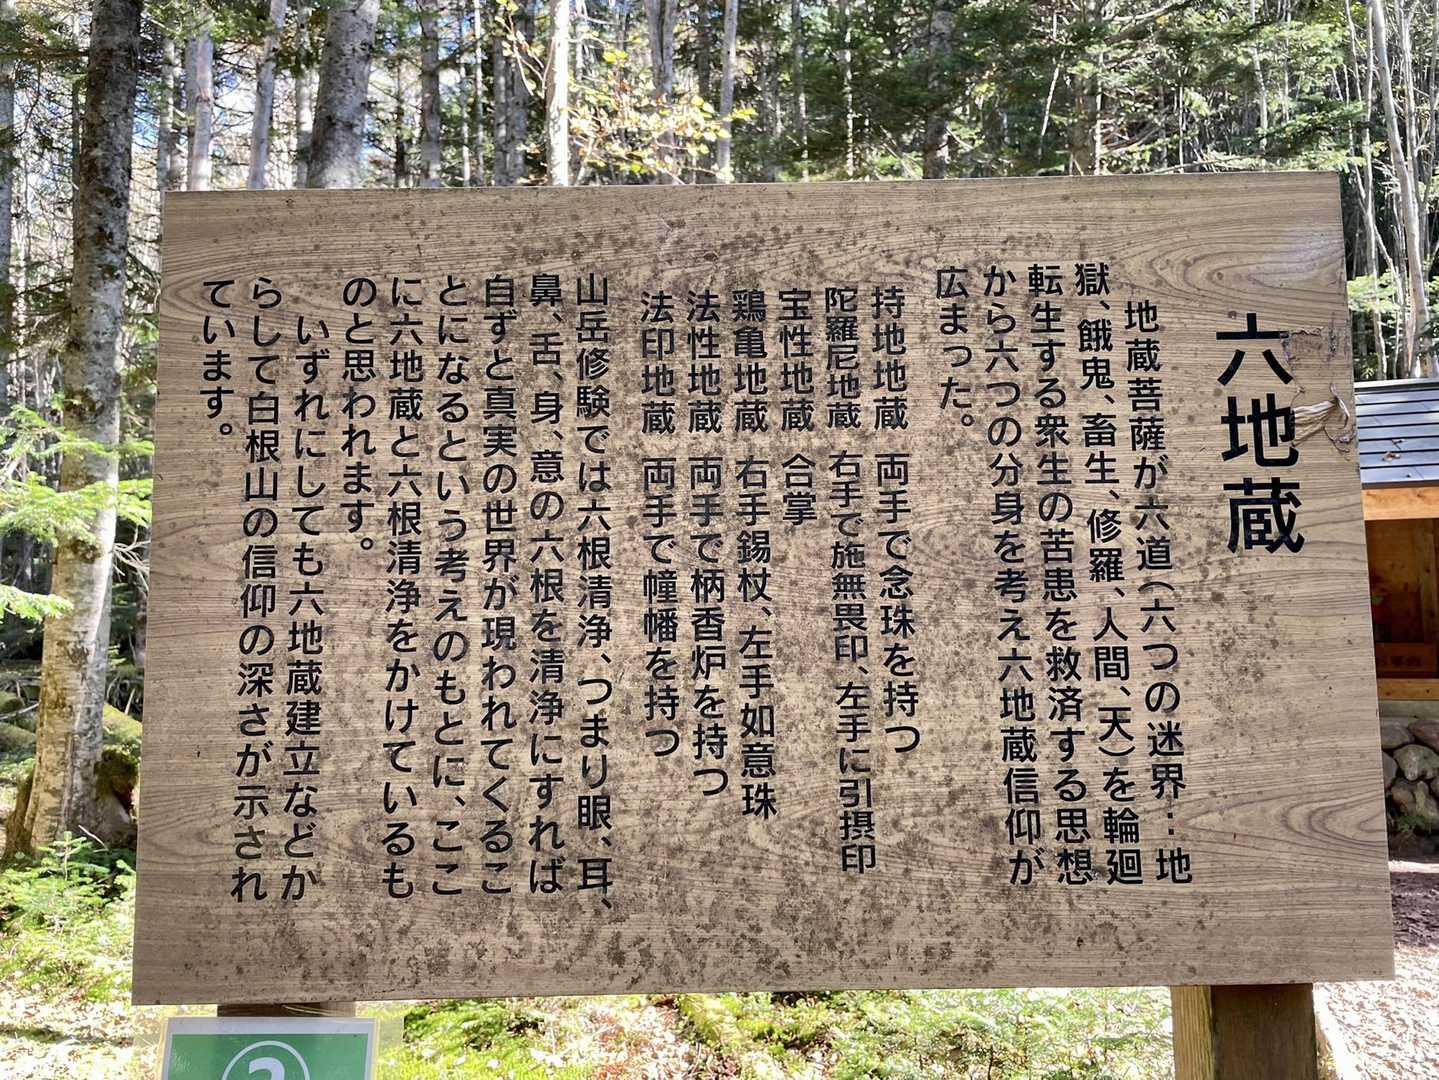 六地蔵
地蔵菩薩が六道（六つの迷界…地
獄、餓鬼、畜生、修羅、人間、天）を輪廻
転生する衆生の苦患を救済する思想
から六つの分身を考え六地蔵信仰が
広まった。
持地地蔵 両手で念珠を持つ
陀羅尼地蔵 右手で施無畏印、左手に引摂印
宝性地蔵 合掌
鶏亀地蔵 右手錫杖、左手如意珠
法性地蔵 両手で柄香炉を持つ
法印地蔵 両手で幢幡を持つ
山岳修験では六根清浄、つまり眼、耳、
鼻、舌、身、意の六根を清浄にすれば
自ずと真実の世界が現われてくるこ
とになるという考えのもとに、ここ
に六地蔵と六根清浄をかけているも
のと思われます。
いずれにしても六地蔵建立などか
らして白根山の信仰の深さが示され
ています。
2